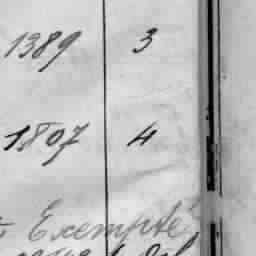 1389 3
1807 4
Exempté